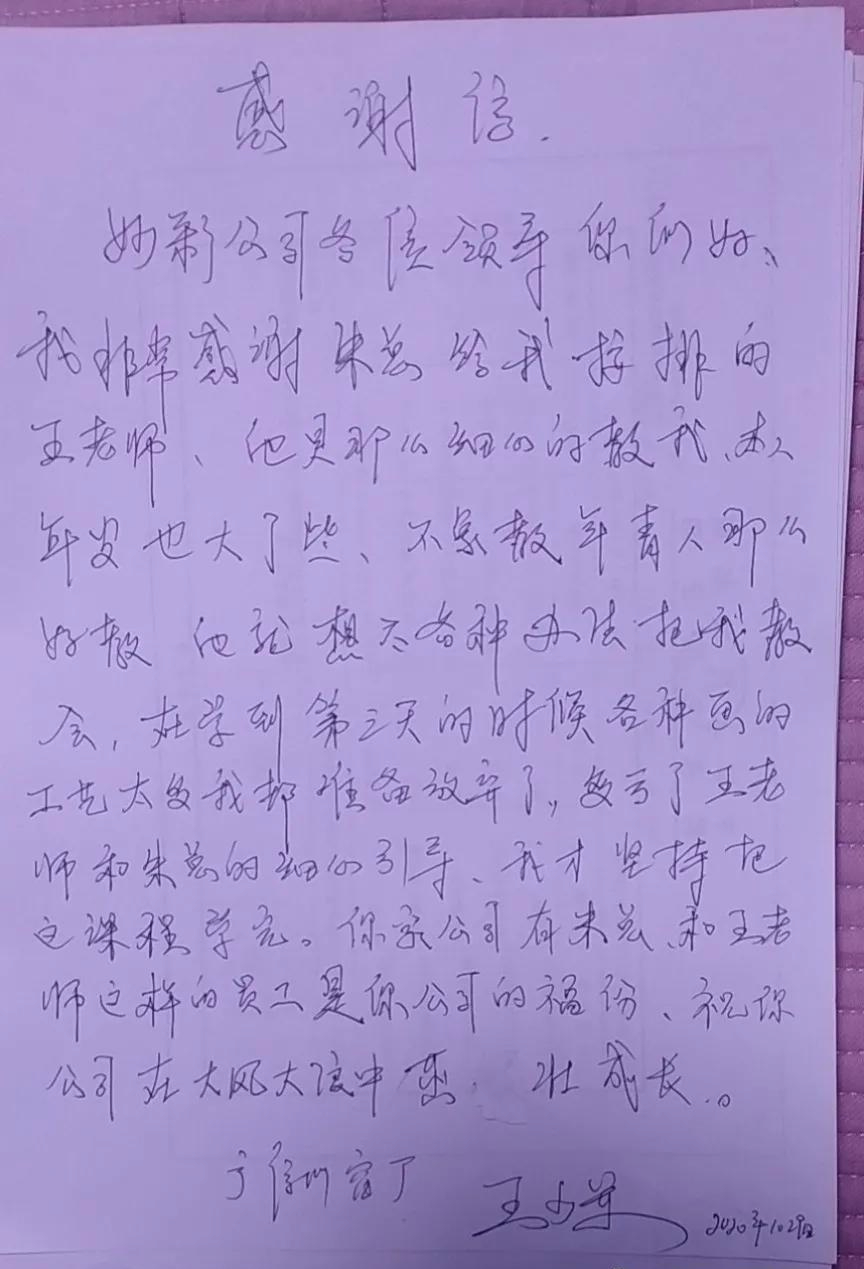 感谢信.
妙新公司各位领导你们好、
我非常感谢朱总给我按排的
王老师、他是那么细心的教我、本人
年岁也大了些、不象教年青人那么
好教 他就想尽各种办法把我教
会,在学到第三天的时候各种画的
工艺太多我都准备放弃了,多亏了王老
师和朱总的细心引导、我才坚持把
这课程学完。你家公司有朱总、和王老
师这样的员工是你公司的福份、祝你
公司在大风大浪中茁 壮成长.。
王少华 2020年10月29日